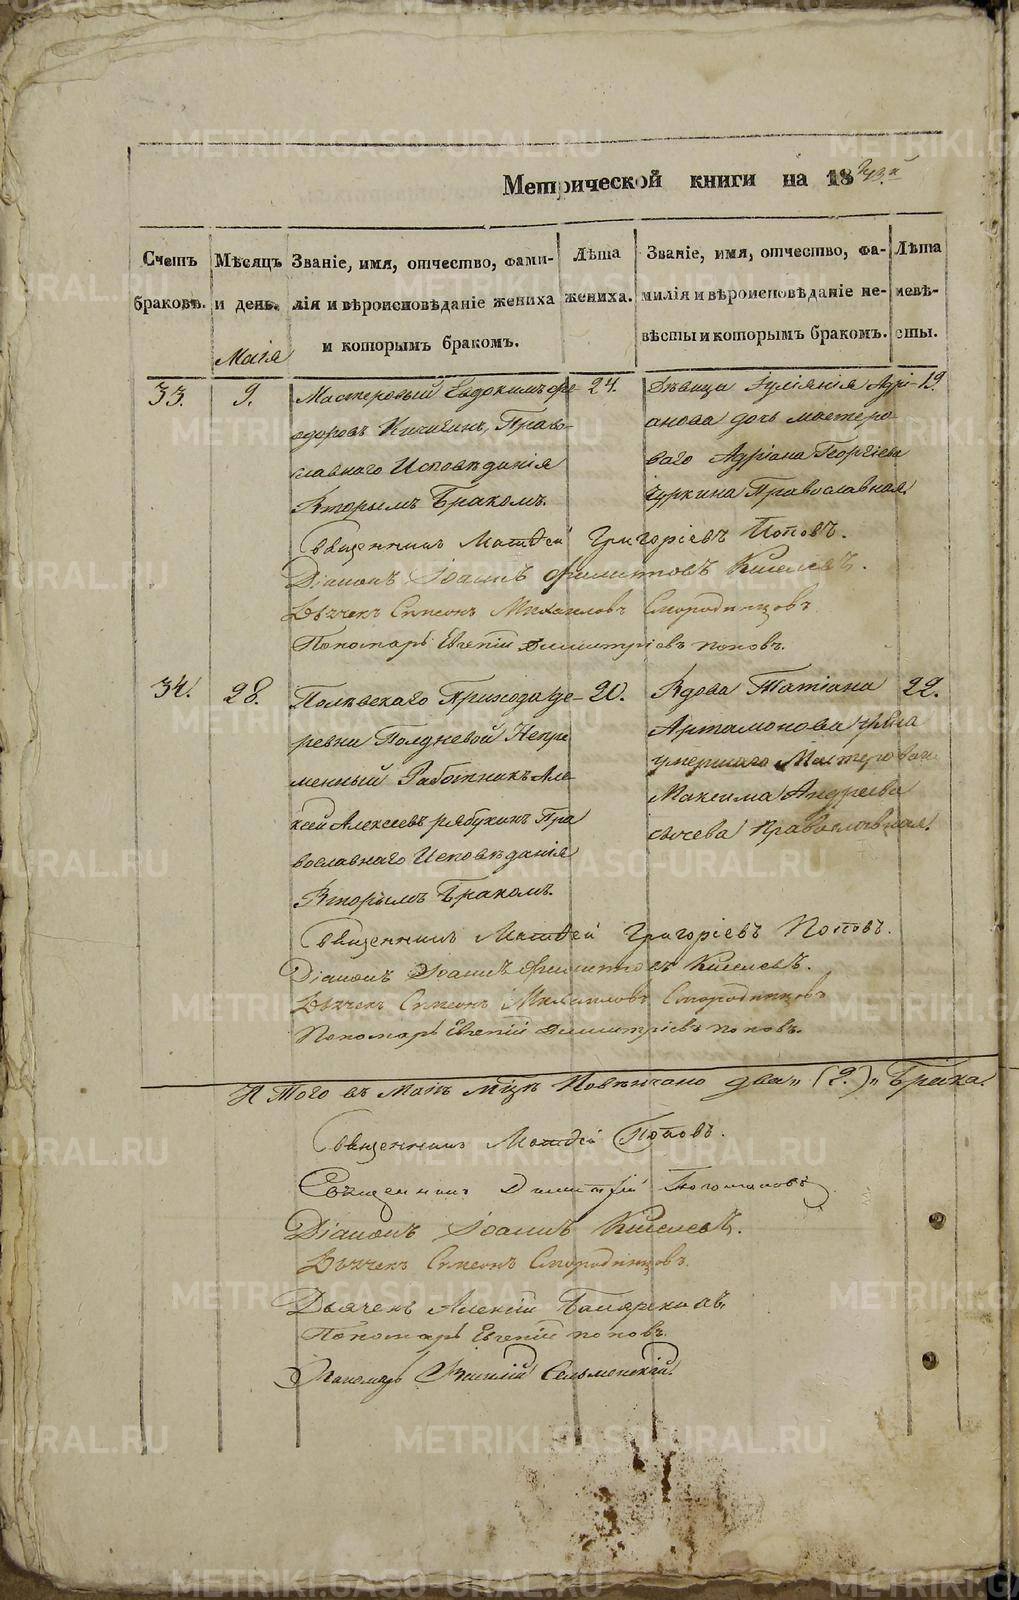 Метрической книги на 18
Счетъ браковъ.
Мѣсяцъ и день.
Званіе, имя, отчество, фамилія и вѣроисповѣданіе жениха и которымъ бракомъ.
Лѣта жениха.
Званіе, имя, отчество, фамилія и вѣроисповѣданіе невѣсты и которымъ бракомъ.
Лѣта невѣсты.
Маія
33.
9.
Мастеровый Евдокимъ Ѳе-
одоровъ Кичигинъ, Право-
славнаго Исповѣданія
Вторымъ Бракомъ.
24.
Дѣвица Іуліянія Адрі-
анова дочь мастеро-
ваго Адріана Георгіева
Чуркина Православная.
19
Священникъ Матѳей Григоріевъ Поповъ.
Діаконъ Іоаннъ Филиповъ Киселевъ.
Дьячекъ Симеонъ Михаиловъ Смородинцовъ
Пономарь Евгеній Димитріевъ поповъ.
34.
28.
Полѣвскаго Прихода де-
ревни Полдневой Непре
менный Работникъ Але-
ксей Алексеевъ рябухинъ Пра
вославнаго Исповѣданія
Вторымъ Бракомъ.
20.
Вдова Татіана
Артамонова
умершаго Мастероваго
Максима Андреева
сычева Православная.
22.
Священникъ Матѳей Григоріевъ Поповъ.
Діаконъ Іоаннъ Филиповъ Киселевъ.
Дьячекъ Симеонъ Михаиловъ Смородинцовъ
Пономарь Евгеній Димитріевъ поповъ.
И Того въ Маіѣ мцѣ Повѣнчано два" (2.)" Брака.
Священникъ Матѳей Поповъ.
Священникъ Димитрій
Діаконъ Іоаннъ Киселевъ.
Дьячекъ Симеонъ Смородинцовъ.
Дьячекъ Алексій
Пономарь Евгеній поповъ.
Пономарь Василій
METRIKI.GASO-URAL.RU